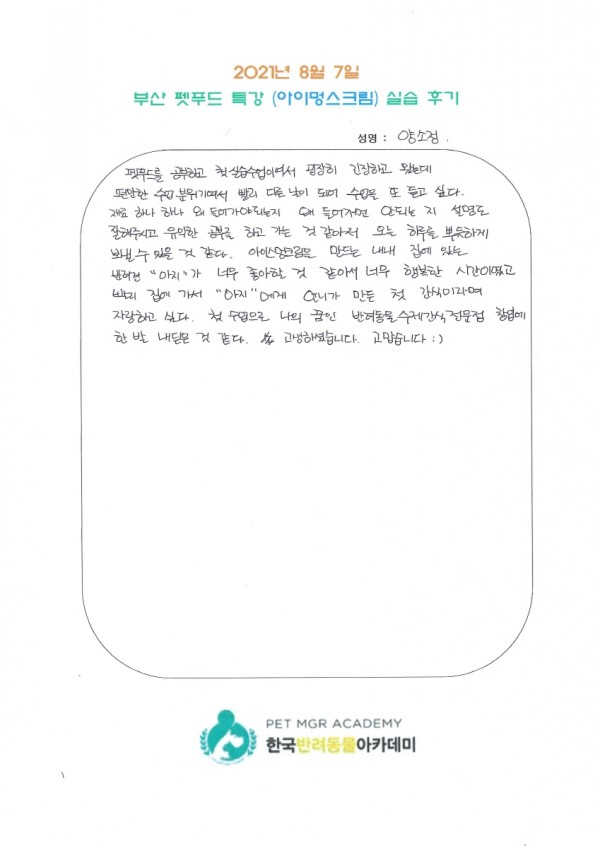 2021년 8월 7일
부산 펫푸드 특강 (아이멍스크림) 실습 후기
성명 : 양소정.
펫푸드를 공부하고 첫 실습수업이여서 굉장히 긴장하고 왔는데
편안한 수업 분위기여서 빨리 다른 날이 되어 수업을 또 듣고 싶다.
재료 하나 하나 왜 들어가야되는지 왜 들어가면 안되는 지 설명도
잘해주시고 유익한 공부를 하고 가는 것 같아서 오늘 하루를 뿌듯하게
보낼 수 있을 것 같다. 아이스멍크림을 만드는 내내 집에 있는
반려견 "아지"가 너무 좋아할 것 같아서 너무 행복한 시간이였고
빨리 집에 가서 "아지"에게 언니가 만든 첫 간식이라며
자랑하고 싶다. 첫 수업으로 나의 꿈인 반려동물수제간식전문점 창업에
한 발 내딛은 것 같다. 고생하셨습니다. 고맙습니다 :)
PET MGR ACADEMY
한국반려동물아카데미